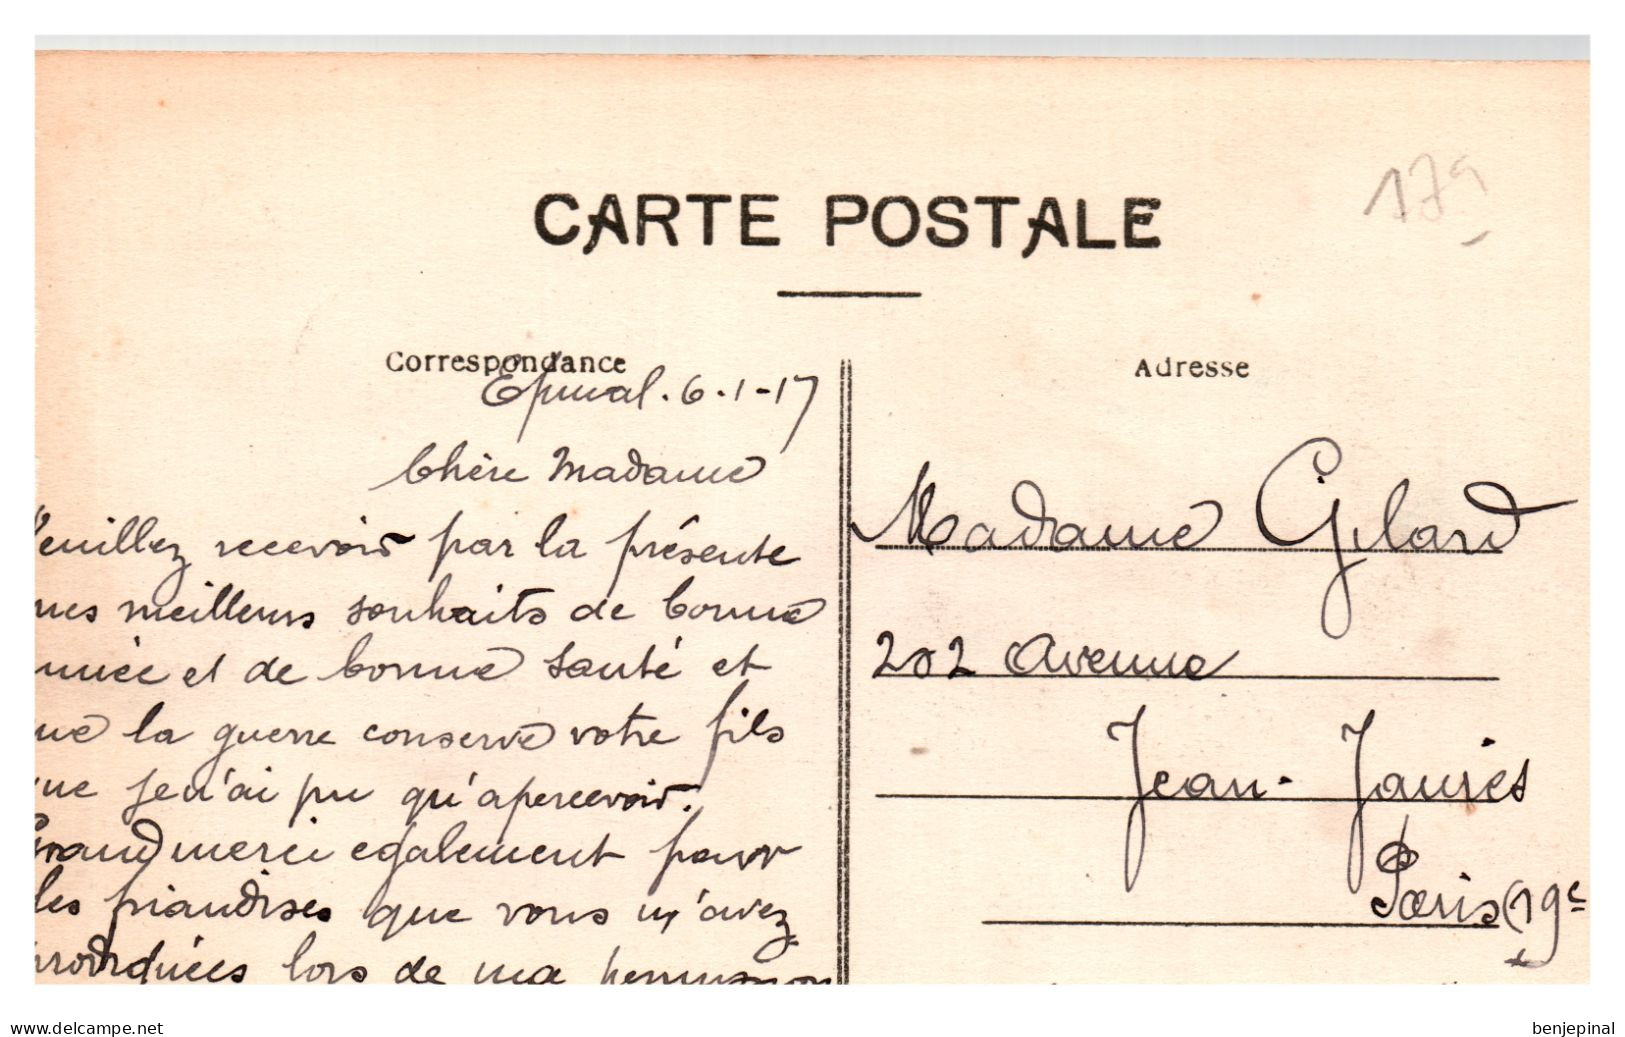 CARTE POSTALE
179
Correspondance
Epinal. 6.1-17
Chère Madame
Veuillez recevoir par la présente
mes meilleurs souhaits de bonne
année et de bonne santé et
que la guerre conserve votre fils
que je n'ai pu qu'apercevoir.
Grand merci egalement pour
les friandises que vous m'avez
prodiguées lors de ma permission
Adresse
Madame Gilard
202 Avenue
Jean-Jaurès
Paris (19e
delcampe.net
benjepinal